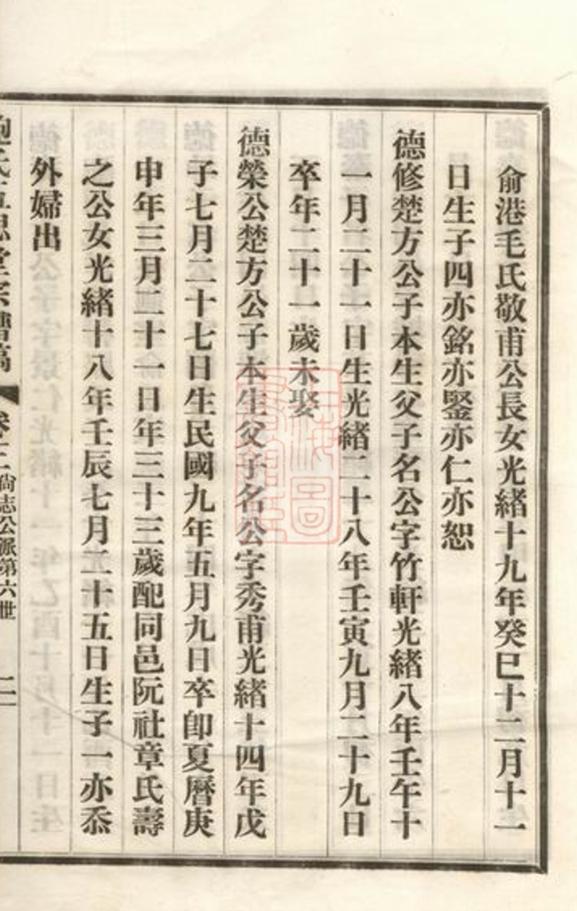 俞港毛氏敬甫公長女光緒十九年癸巳十二月十一
日生子四亦銘亦鋻亦仁亦恕
德修楚方公子本生父子名公字竹軒光緒八年壬午十
一月二十一日生光緒二十八年壬寅九月二十九日
卒年二十一歲未娶
德榮公楚方公子本生父子名公字秀甫光緒十四年戊
子七月二十七日生民國九年五月九日卒卽夏曆庚
申年三月二十一日年三十三歲配同邑阮社章氏壽
之公女光緒十八年壬辰七月二十五日生子一亦忝
外婦出
尙志公派第六世